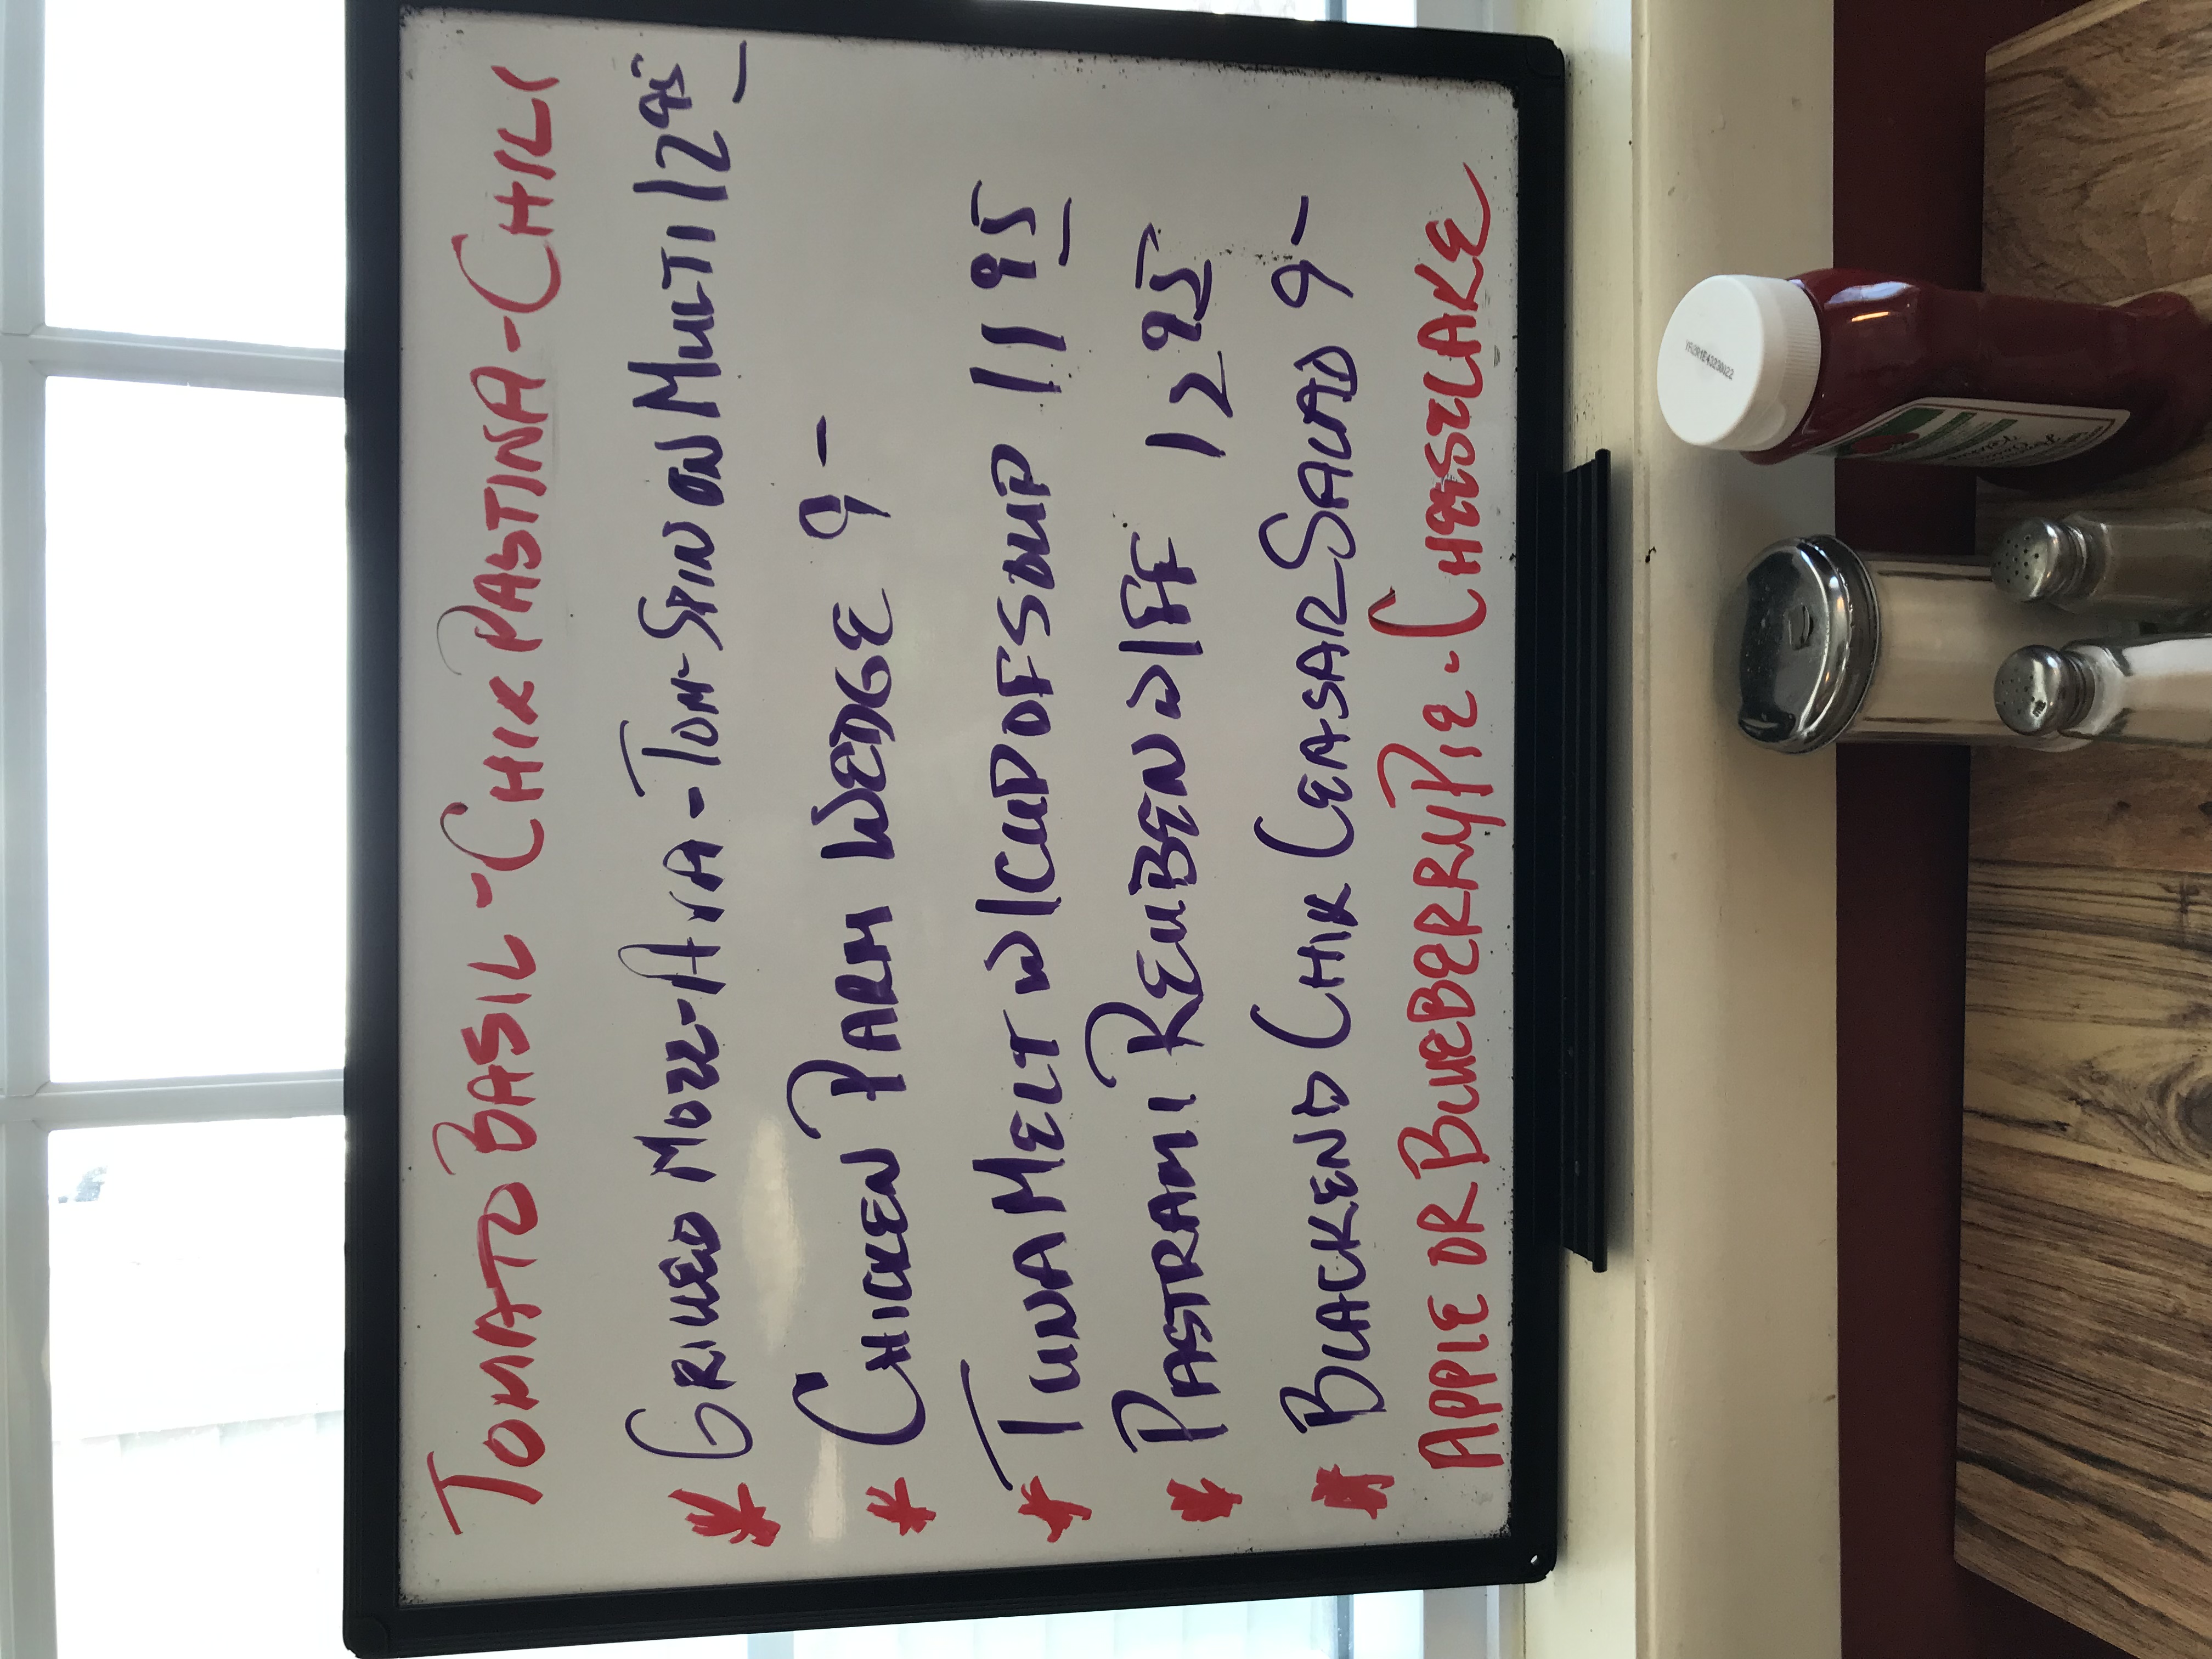 TOMATO BASIL - CHIK PASTINA - CHILI
* GRILLED MOZZ - AVA - TOM - SPIN ON MULTI 12 95
* CHICKEN PARM WEDGE 9 -
* TUNA MELT W/ CUP OF SOUP 11 95
* PASTRAMI REUBEN W/ FF 12 95
* BLACKEND CHIK CEASAR SALAD 9 -
APPLE OR BLUEBERRY PIE - CHEESECAKE